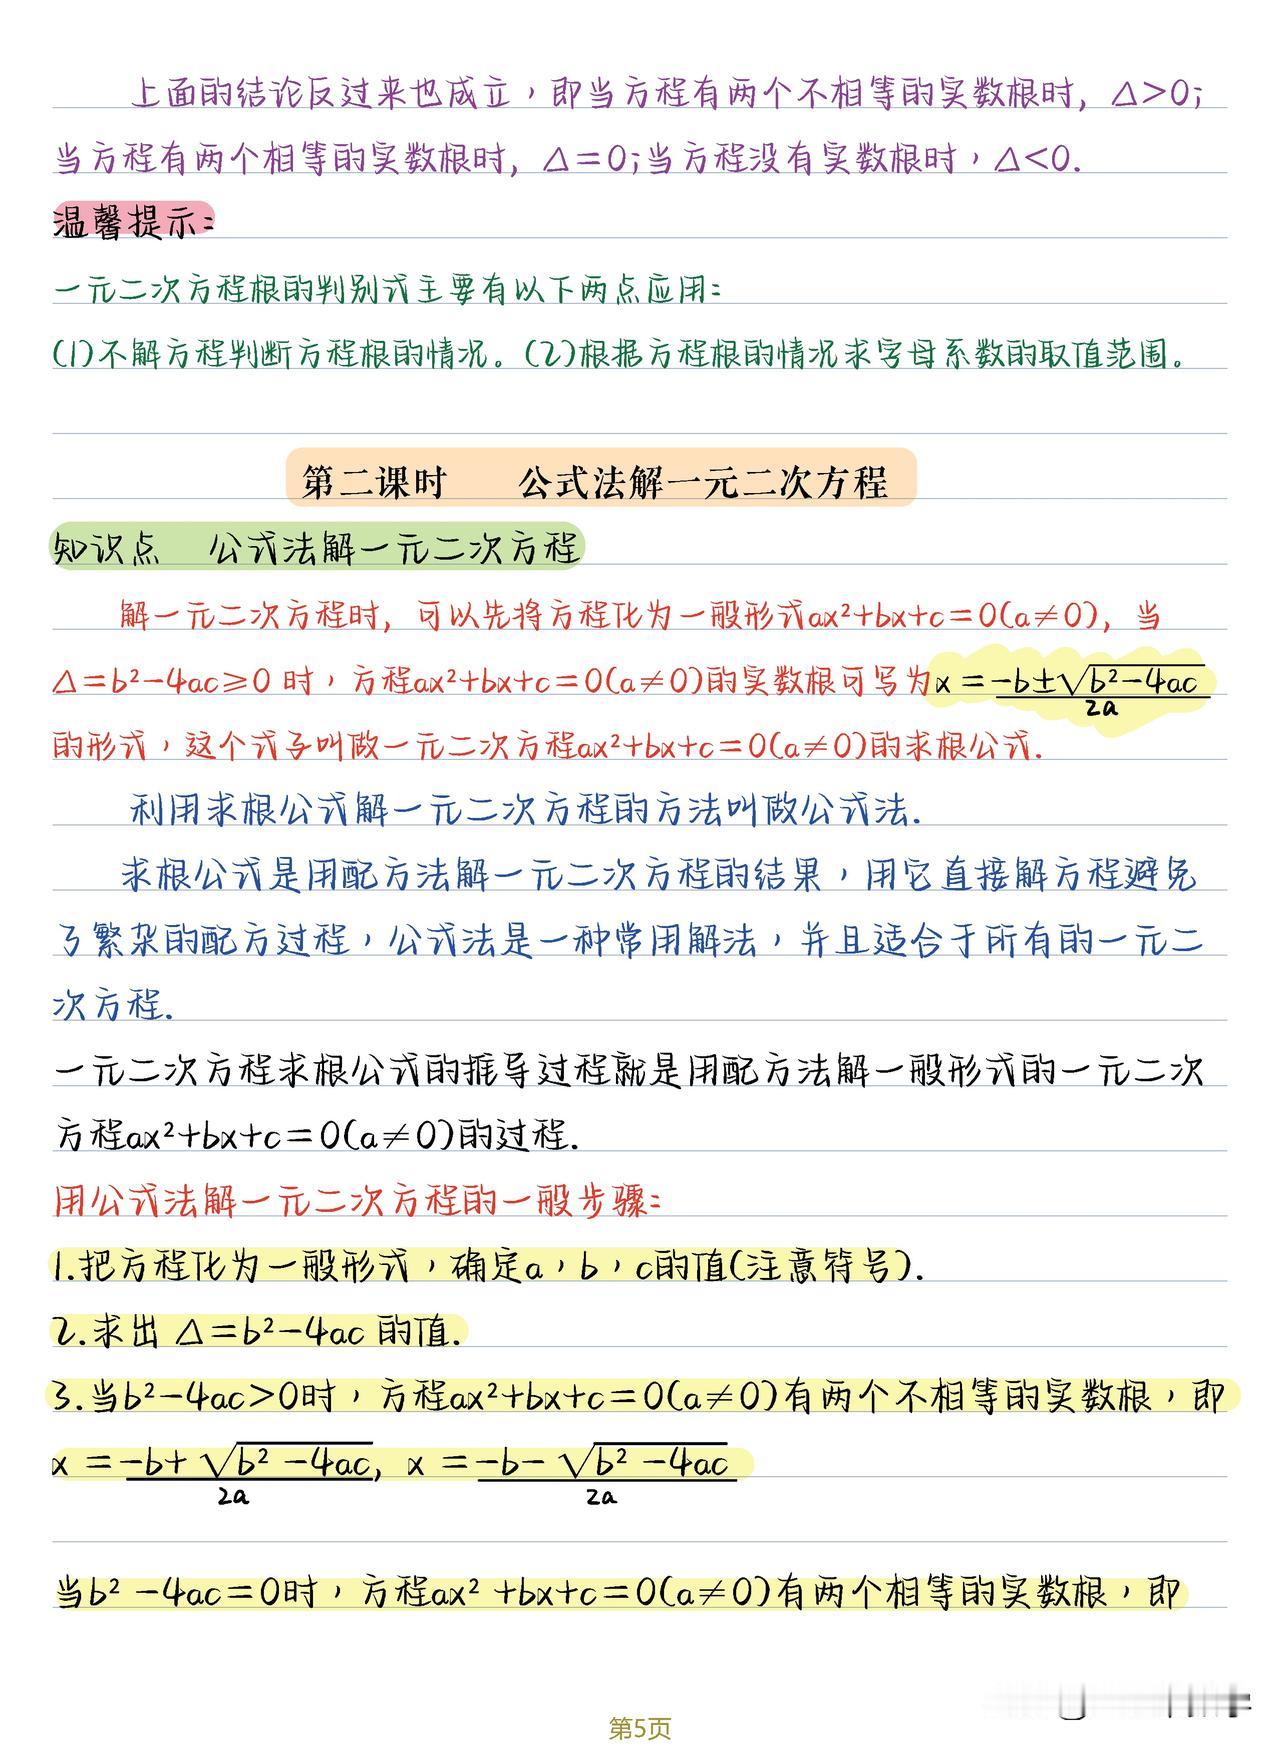 上面的结论反过来也成立，即当方程有两个不相等的实数根时，Δ>0；
当方程有两个相等的实数根时，Δ=0；当方程没有实数根时，Δ<0.
温馨提示：
一元二次方程根的判别式主要有以下两点应用：
(1)不解方程判断方程根的情况。(2)根据方程根的情况求字母系数的取值范围。
第二课时　　公式法解一元二次方程
知识点　公式法解一元二次方程
解一元二次方程时，可以先将方程化为一般形式ax²+bx+c=0(a≠0)，当
Δ=b²-4ac≥0 时，方程ax²+bx+c=0(a≠0)的实数根可写为x=(-b±√(b²-4ac))/2a
的形式，这个式子叫做一元二次方程ax²+bx+c=0(a≠0)的求根公式.
利用求根公式解一元二次方程的方法叫做公式法.
求根公式是用配方法解一元二次方程的结果，用它直接解方程避免
了繁杂的配方过程，公式法是一种常用解法，并且适合于所有的一元二
次方程.
一元二次方程求根公式的推导过程就是用配方法解一般形式的一元二次
方程ax²+bx+c=0(a≠0)的过程.
用公式法解一元二次方程的一般步骤：
1.把方程化为一般形式，确定a，b，c的值(注意符号).
2.求出 Δ=b²-4ac 的值.
3.当b²-4ac>0时，方程ax²+bx+c=0(a≠0)有两个不相等的实数根，即
x=(-b+√(b²-4ac))/2a, x=(-b-√(b²-4ac))/2a
当b²-4ac=0时，方程ax²+bx+c=0(a≠0)有两个相等的实数根，即
第5页